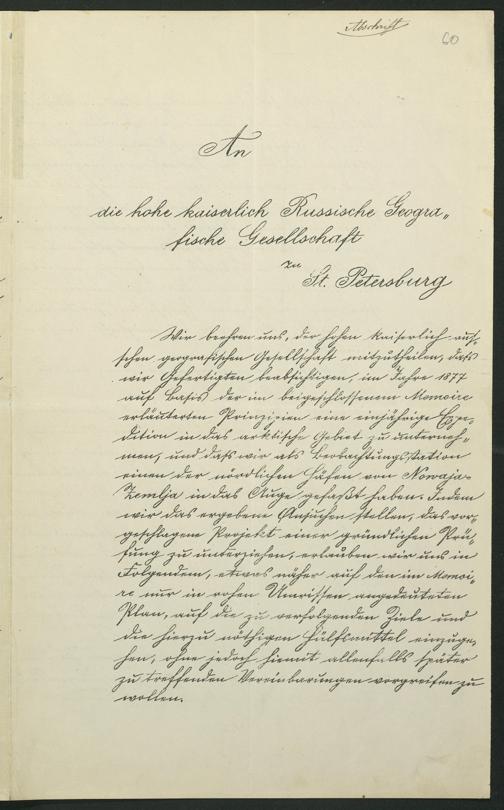 Abschrift
60
An
die hohe kaiserlich Russische Geogra„
fische Gesellschaft
zu
St. Petersburg
Wir beehren uns, der hohen kaiserlich-rus„
schen geografischen Gesellschaft mitzutheilen, daß
wir Gefertigten beabsichtigen, im Jahre 1877
auf Basis der in beigeschlossenem Memoire
erläuterten Prinzipien eine einjährige Expe„
dition in das arktische Gebiet zu unterneh„
men, und daß wir als Beobachtungsstation
einen der nördlichen Häfen von Nowaja-
Zemlja in das Auge gefaßt haben. Indem
wir das ergebene Ansuchen stellen, das vor„
geschlagene Projekt einer gründlichen Prü„
fung zu unterziehen, erlauben wir uns in
Folgendem, etwas näher auf den im Memoi„
re nur in rohen Umrissen angedeuteten
Plan, auf die zu verfolgenden Ziele und
die hierzu nöthigen Hülfsmittel einzuge„
hen, ohne jedoch hiemit allenfalls später
zu treffenden Vereinbarungen vorgreifen zu
wollen.